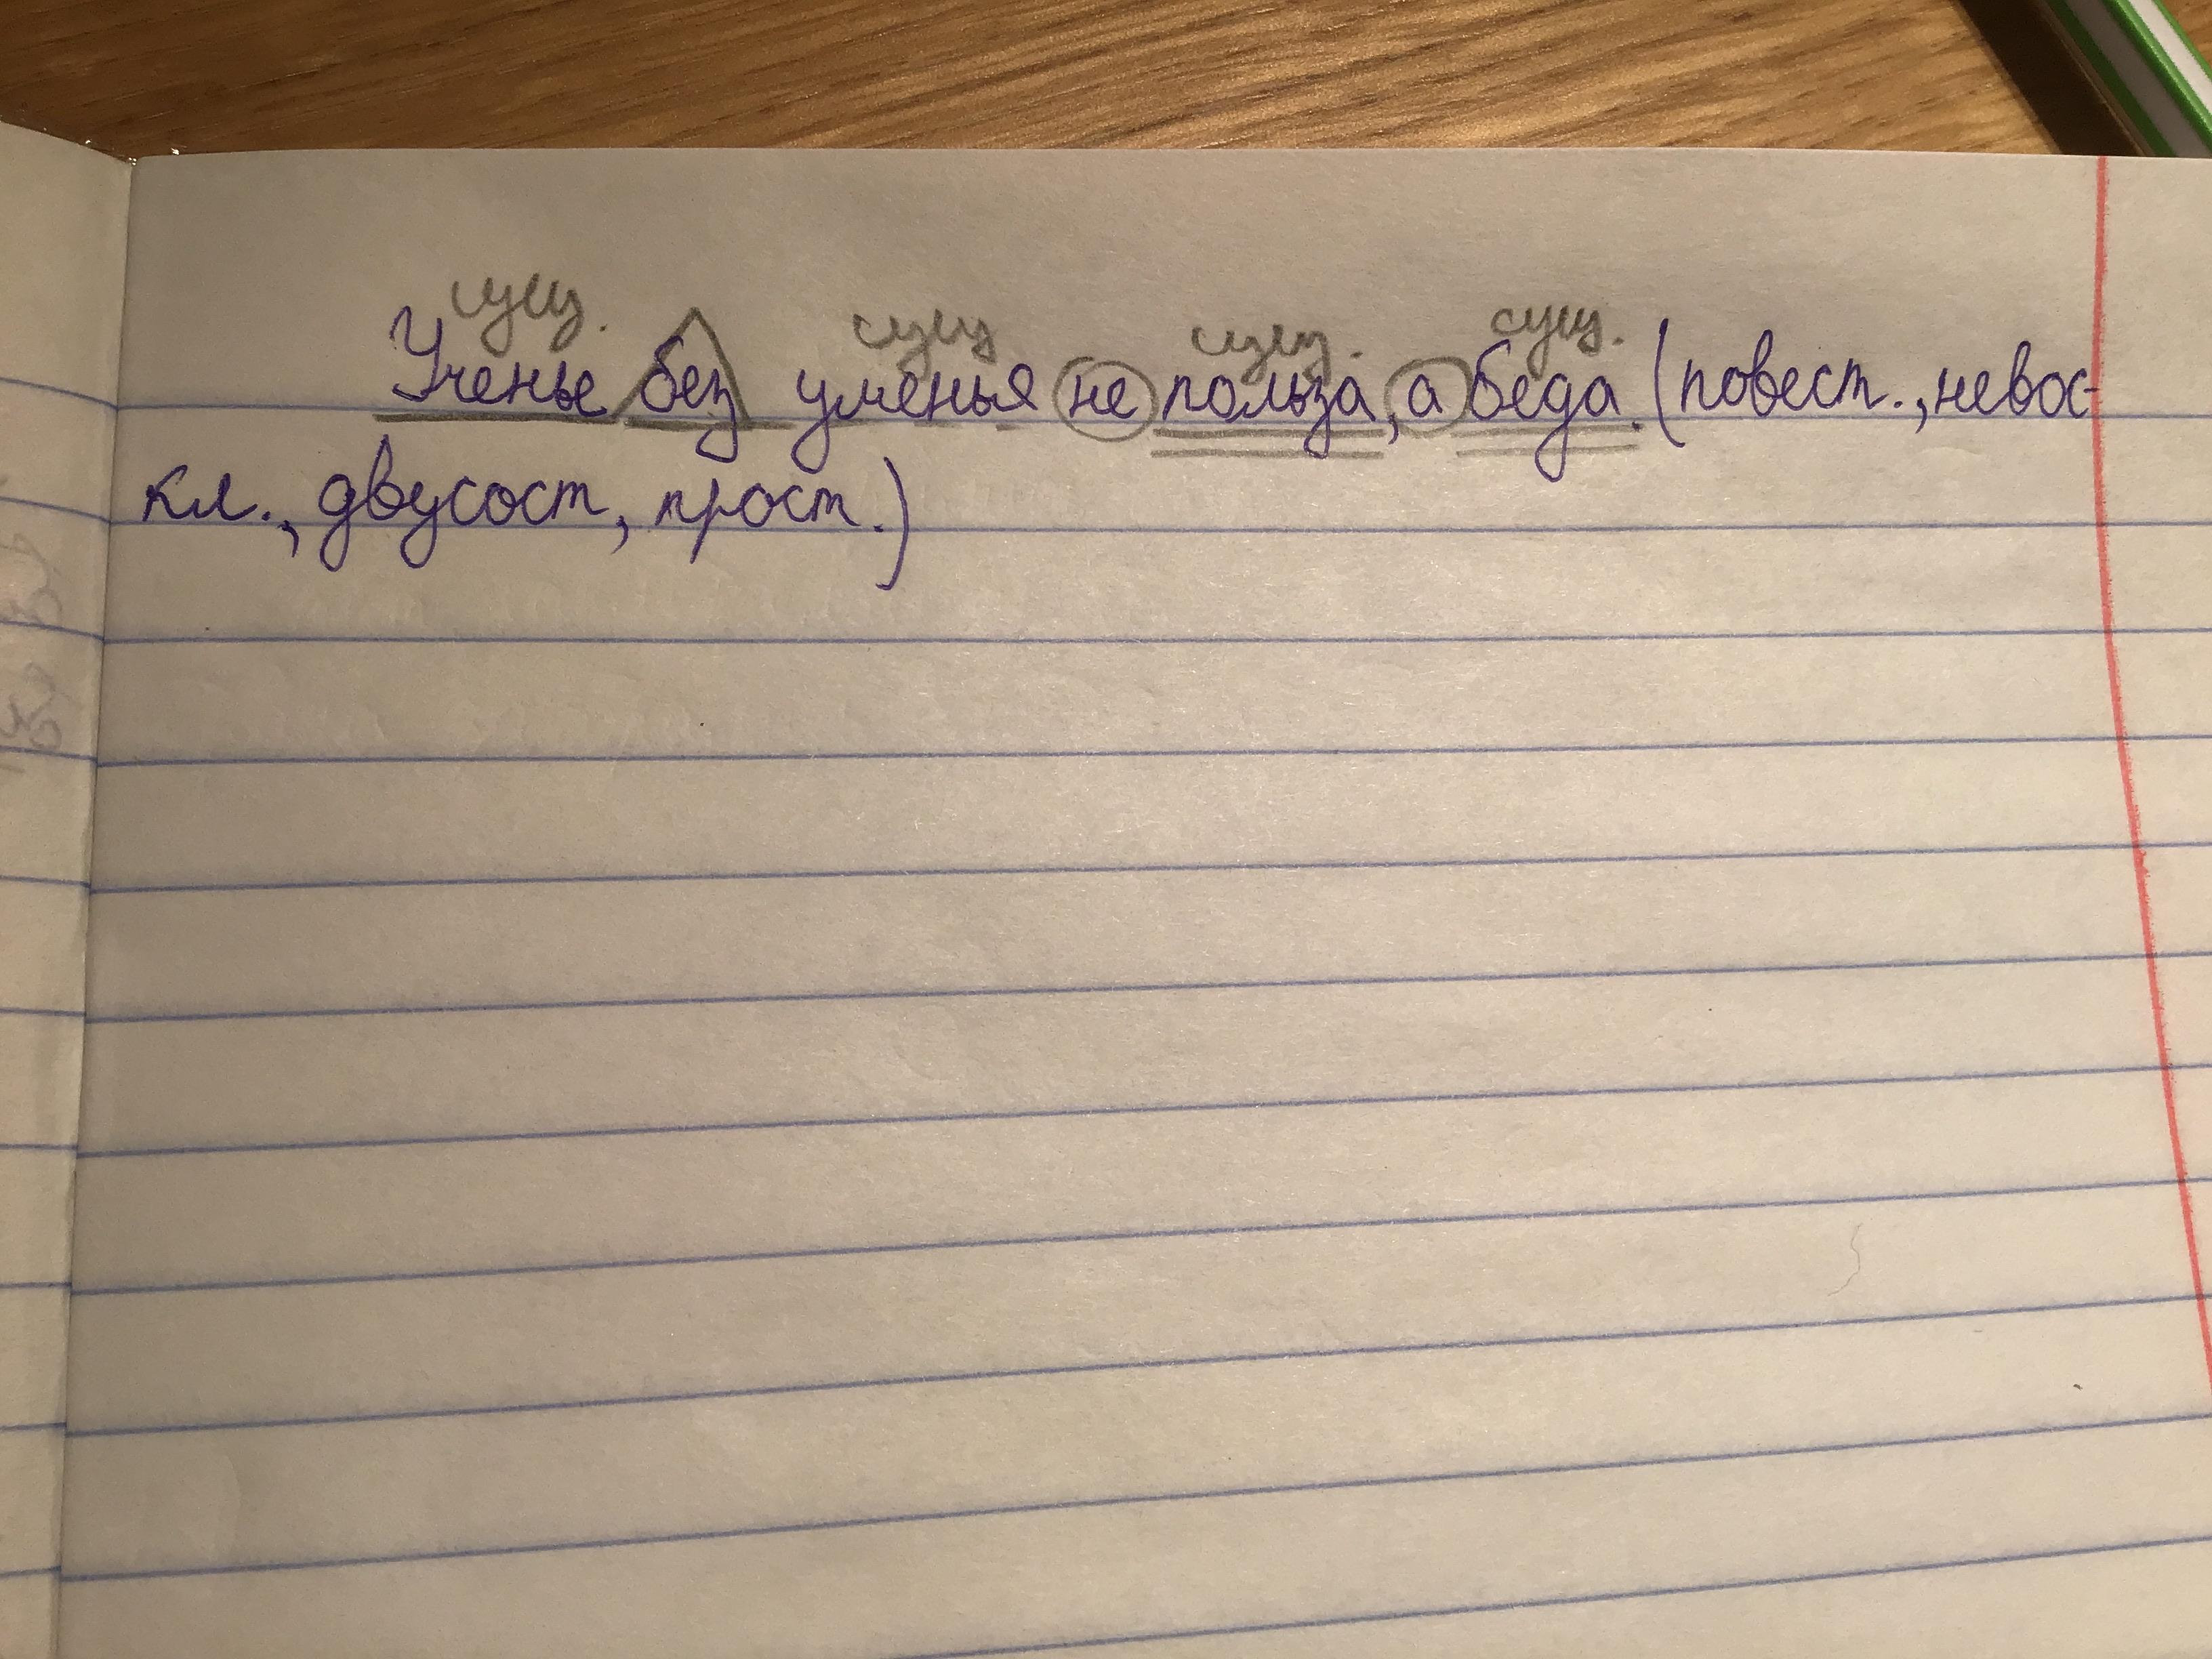 сущ. сущ сущ. сущ.
Ученье без уменья не польза, а беда. (повест., невос-
кл., двусост, прост.)